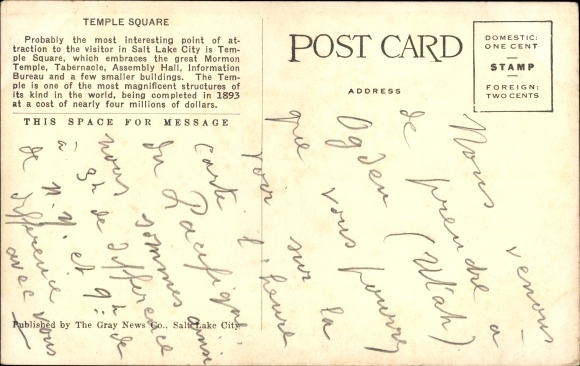 TEMPLE SQUARE
Probably the most interesting point of at-
traction to the visitor in Salt Lake City is Tem-
ple Square, which embraces the great Mormon
Temple, Tabernacle, Assembly Hall, Information
Bureau and a few smaller buildings. The Tem-
ple is one of the most magnificent structures of
its kind in the world, being completed in 1893
at a cost of nearly four millions of dollars.
THIS SPACE FOR MESSAGE
POST CARD
ADDRESS
DOMESTIC:
ONE CENT
STAMP
FOREIGN:
TWO CENTS
Nous venons
de prendre a
Ogden (Utah)
que vous pourrez
voir sur la
carte l'heure
du Pacifique
nous sommes ainsi
à 3h de différence
de N.Y. et 9h de
différence
avec vous
Published by The Gray News Co., Salt Lake City.